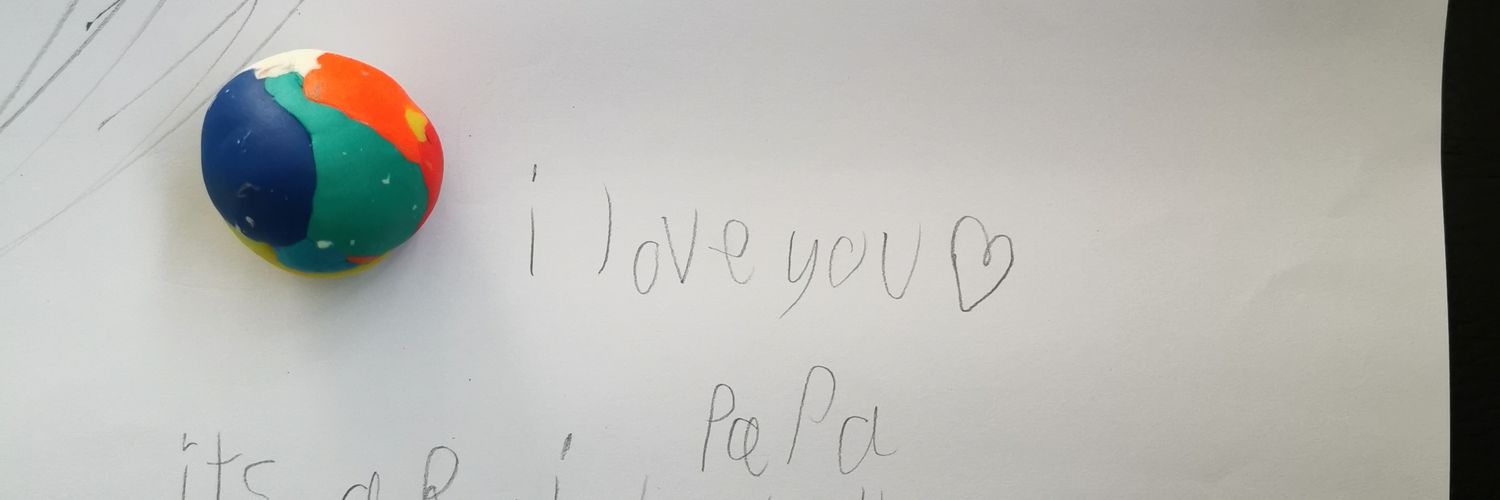 i love you
papa
its a